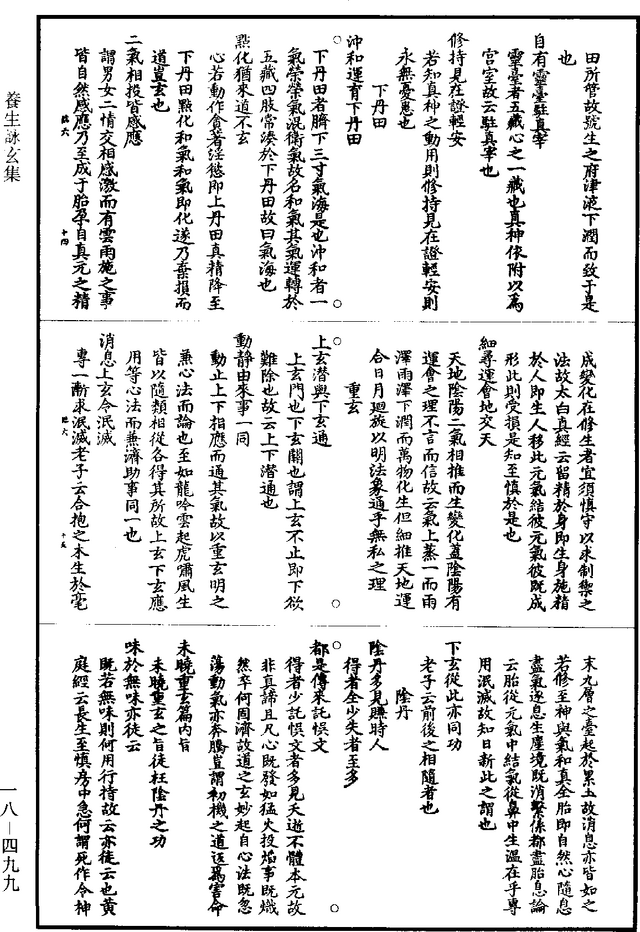 田所管故號生之府津液下潤而致于是
也
自有靈臺駐真宰
靈臺者五藏心之一藏也真神依附以爲
宫室故云駐真宰也
修持見在證輕安
若知真神之動用則修持見在證輕安則
永無憂患也
下丹田
沖和運育下丹田
下丹田者臍下三寸氣海是也沖和者一
氣榮榮氣混衛氣故名和氣其氣運轉於
五藏四肢常湊於下丹田故曰氣海也
點化猶來道不玄
心若動作貪著淫慾即上丹田真精降至
下丹田點化和氣和氣即化遂乃棄損而
道豈玄也
二氣相投皆感應
謂男女二情交相感激而有雲雨施之事
皆自然感應乃至成于胎孕自真元之精
成變化在修生者宜須慎守以求制禦之
法故太白真經云留精於身即生身施精
於人即生人移此元氣結彼元氣彼既成
形此則受損是知至慎於是也
細尋運會地交天
天地陰陽二氣相推而生變化蓋陰陽有
運會之理不言而信故云氣上蒸一而雨
澤雨澤下潤而萬物化生但細推天地運
合日月廻旋以明法象通乎無私之理
重玄
上玄潜與下玄通
上玄門也下玄關也謂上玄不止即下欲
難除也故云上下潜通也
動静由來事一同
動止上下指應而通其氣故以重玄明之
兼心法而論也至如龍吟雲起虎嘯風生
皆以隨類相從各得其所故上玄下玄應
用等心法而兼濟助事同一也
消息上玄令泯滅
專一漸求泯滅老子云合抱之木生於毫
末九層之臺起於累土故消息亦皆如之
若修至神與氣和真全胎即自然心隨息
盡氣逐息生塵境既消繫係都盡胎息論
云胎從元氣中結氣從鼻中生温在乎專
用泯滅故知日新此之謂也
下玄從此亦同功
老子云前後之相隨者也
陰丹
陰丹多見賺時人
得者全少失者至多
都是傳來託悮文
得者少託悮文者多見夭逝不體本元故
非真諦且凡心既發如猛火投焰事既熾
然卒何固濟故道之玄妙起自心法既忽
蕩動氣亦奔騰豈謂初機之道返爲害命
未曉重玄篇内旨
未曉重玄之旨徒枉陰丹之功
味於無味亦徒云
既若無味則何用行持故云亦徒云也黄
庭經云長生至慎房中急何謂死作令神
養生詠玄集
臨六
十四
臨六
十五
一八—四九九